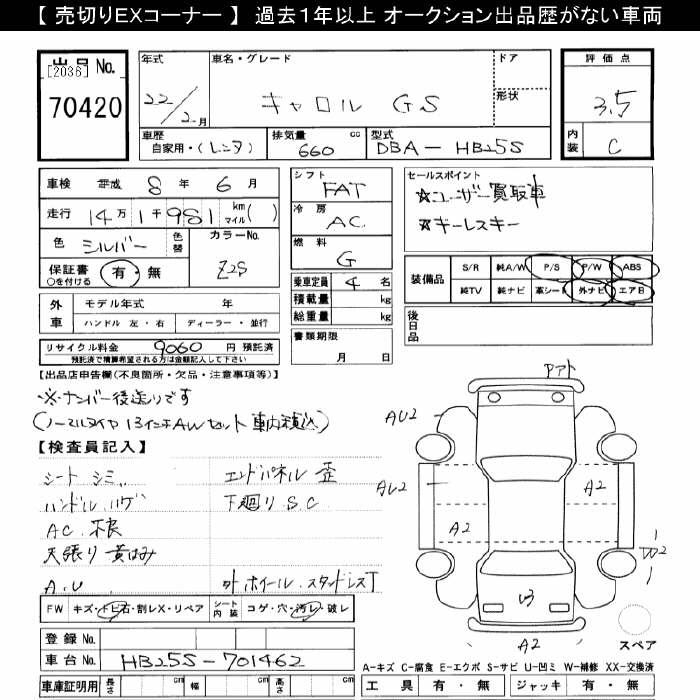 【 売切りEXコーナー 】 過去１年以上 オークション出品歴がない車両
出品 No.
[2036]
70420
年式
22/2月
車名・グレード
キャロル GS
ドア
形状
評価点
3.5
内装 C
車歴
自家用・(レンタ)
排気量 cc
660
型式
DBA-HB25S
車検 平成 8年 6月
走行 14万1千981 km マイル( )
色 シルバー 色替
カラーNo.
Z2S
保証書 有・無
○を付ける
外車 モデル年式 年
ハンドル 左・右 ディーラー・並行
リサイクル料金 9060円 預託済
預託済で精算希望される方は金額記入して下さい
シフト
FAT
冷房
AC
燃料
G
乗車定員 4名
積載量 kg
総重量 kg
書類期限
月 日
セールスポイント
☆ユーザー買取車
☆キーレスキー
装備品 S/R 純A/W P/S P/W ABS
純TV 純ナビ 革シート 外ナビ エアB
後日品
【出品店申告欄(不良箇所・欠品・注意事項等)】
※ナンバー後送りです
(ノーマルタイヤ 13インチAWセット 車内積込)
【検査員記入】
シート シミ エンドパネル 歪
ハンドル ハゲ 下廻り S.C
AC.不良
天張り 黄ばみ
A.U 外ホイール.スタッドレスT
FW キズ・トビ石・割レX・リペア シート内装 コゲ・穴・汚レ・破レ
登録 No.
車台 No. HB25S-701462
車庫証明用 長さ cm 幅 cm 高さ cm
Pアト
AU2
AU2
A2
A2
W2
U3
A2
スペア
A-キズ C-腐食 E-エクボ S-サビ U-凹ミ W-補修 XX-交換済
工具 有・無 ジャッキ 有・無